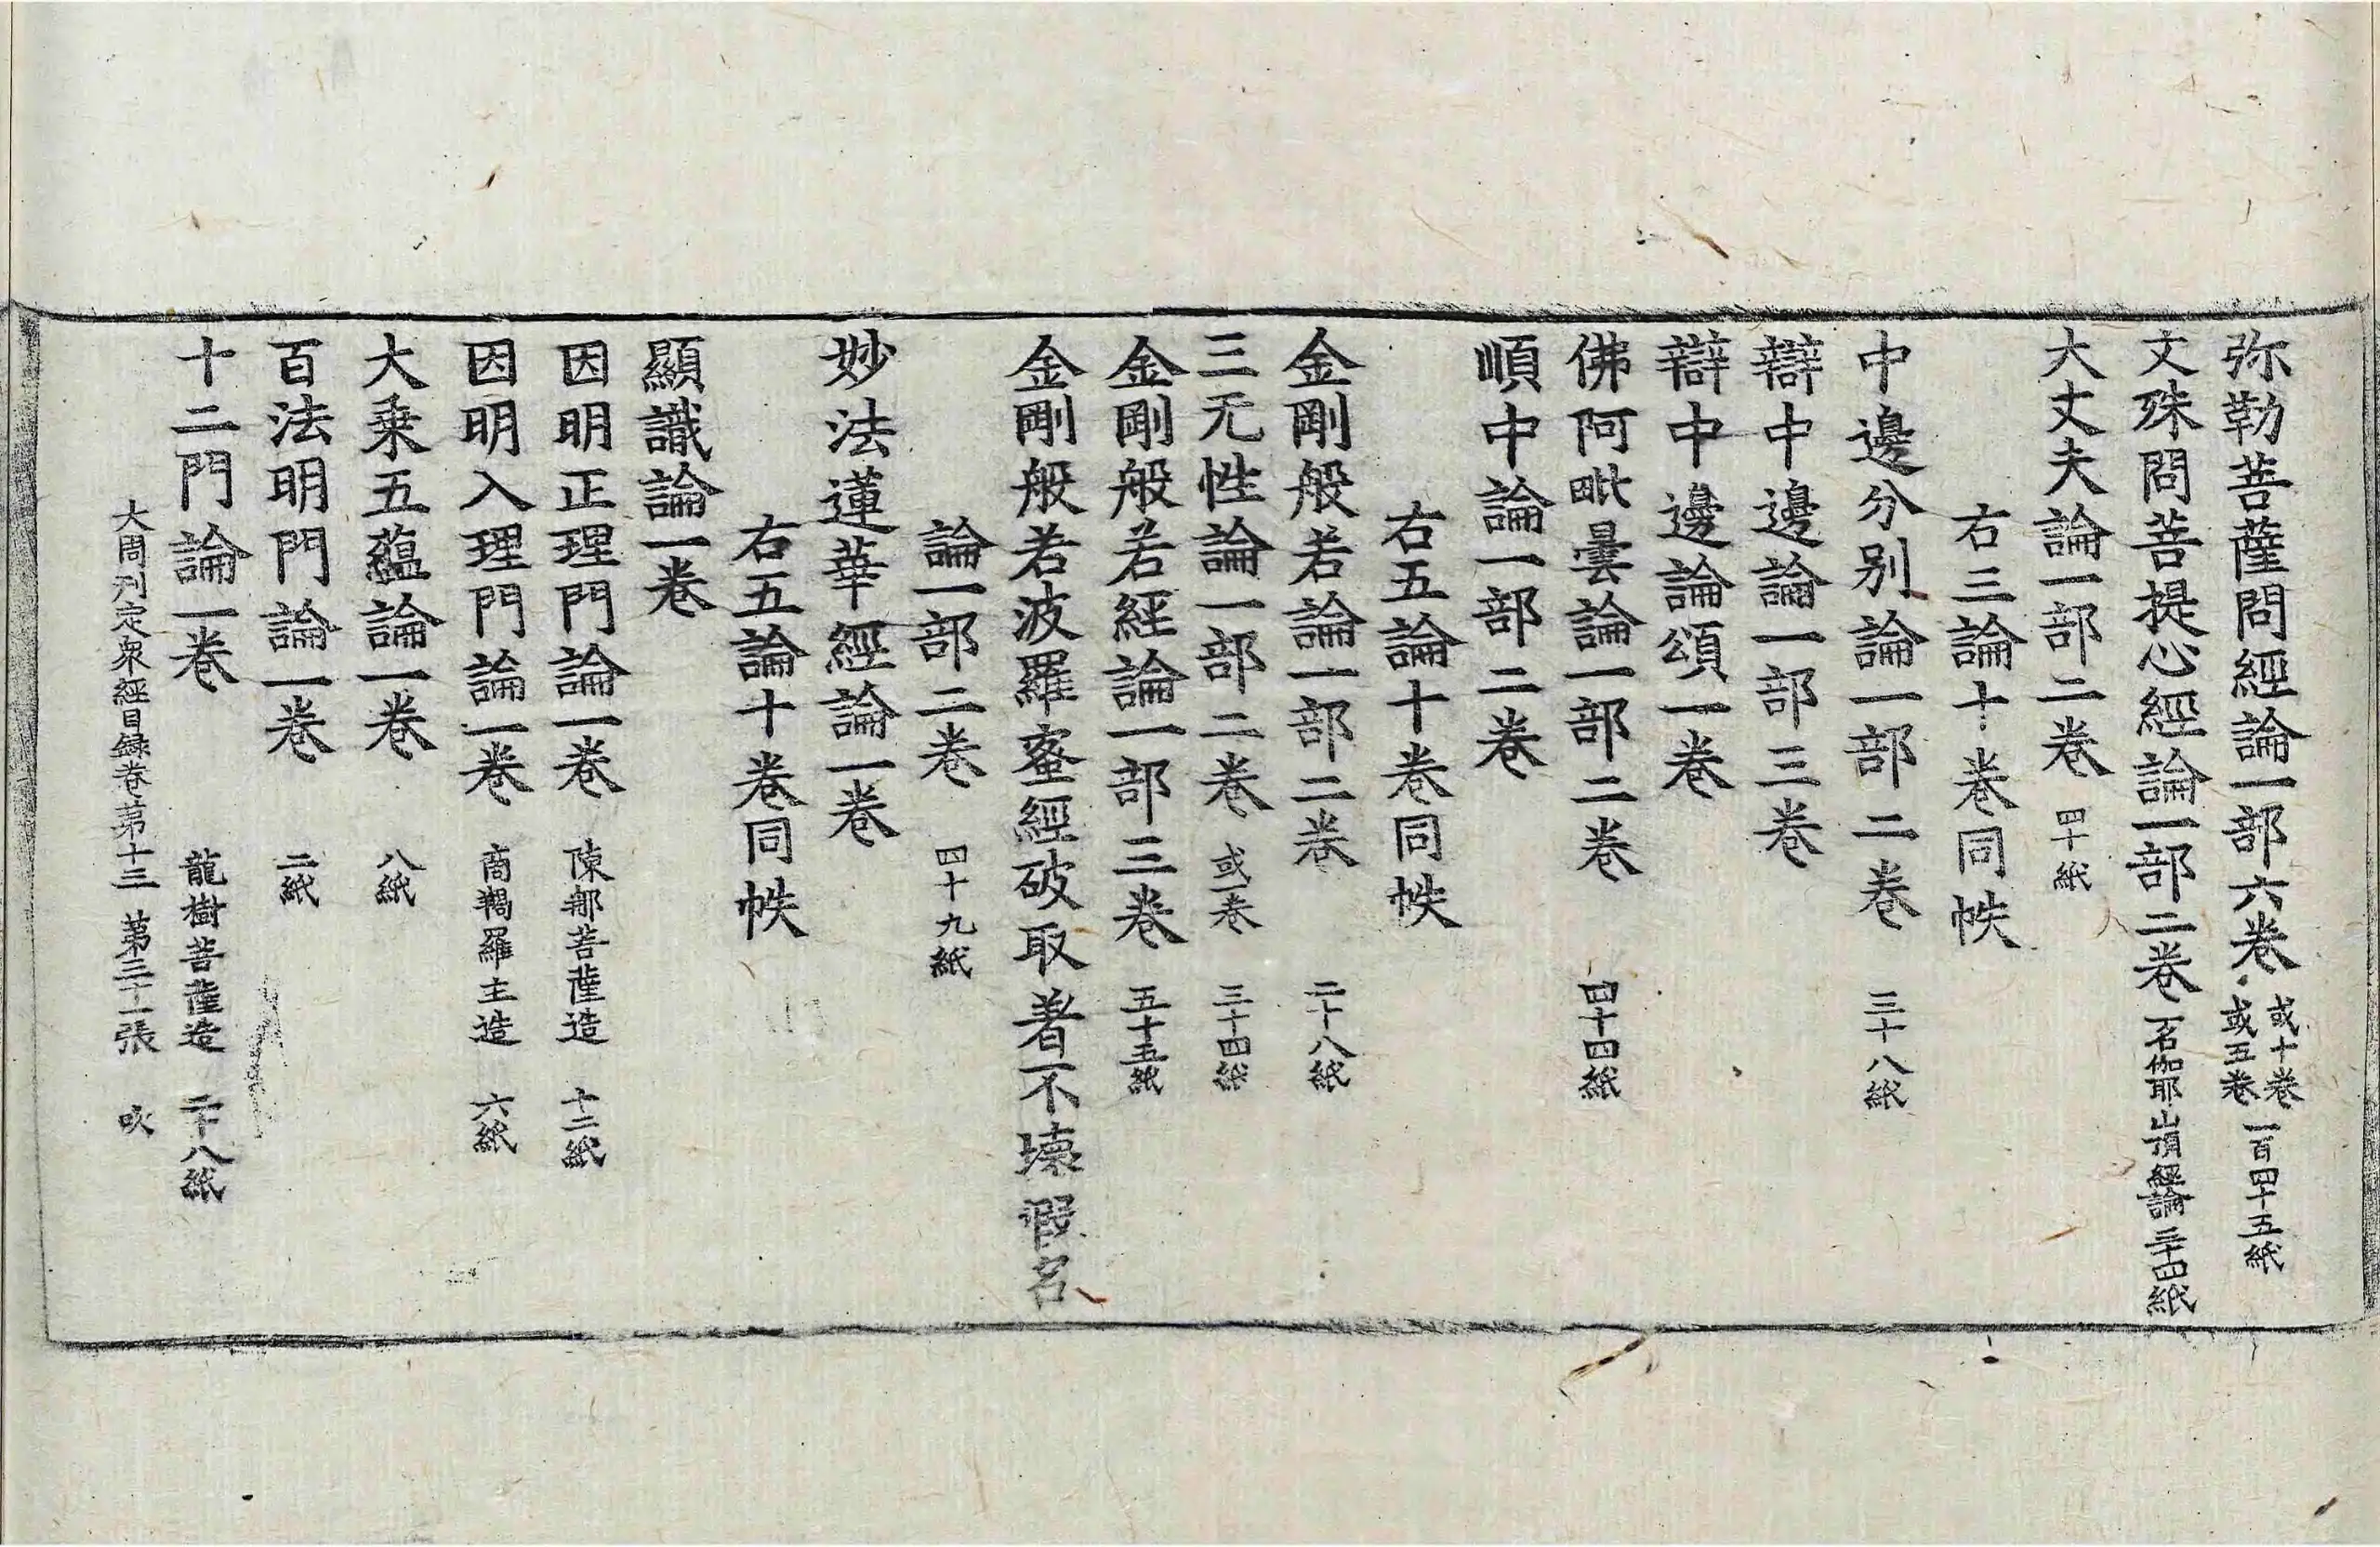 弥勒菩薩問經論一部六卷 或十卷 或五卷 一百四十五紙
文殊問菩提心經論一部二卷 一名伽耶山頂經論 三十四紙
大丈夫論一部二卷 四十紙
右三論十卷同帙
中邊分別論一部二卷 三十八紙
辯中邊論一部三卷
辯中邊論頌一卷
佛阿毗曇論一部二卷 四十四紙
順中論一部二卷
右五論十卷同帙
金剛般若論一部二卷 二十八紙
三无性論一部二卷 或一卷 三十四紙
金剛般若經論一部三卷 五十五紙
金剛般若波羅蜜經破取著不壞假名
論一部二卷 四十九紙
妙法蓮華經論一卷
右五論十卷同帙
顯識論一卷
因明正理門論一卷 陳那菩薩造 十二紙
因明入理門論一卷 商羯羅主造 六紙
大乘五蘊論一卷 八紙
百法明門論一卷 二紙
十二門論一卷 龍樹菩薩造 二十八紙
大周刋定衆經目録卷苐十三 苐三十一張 吹